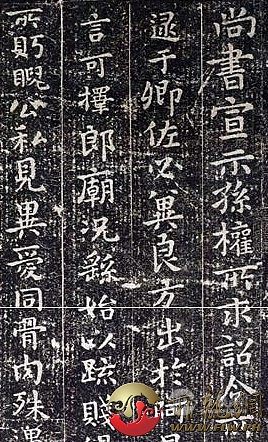 尚書宣示孫權所求詔令
逮于卿佐必冀良方出於
言可擇郎廟況繇始以疏賤
所貺睨公私見異愛同骨肉殊遇